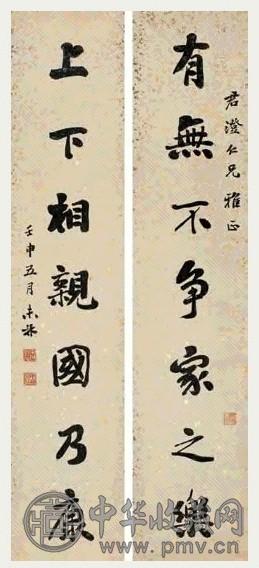 君澄仁兄雅正
有無不争家之樂
上下相親國乃康
壬申五月
中华收藏网
www.pmv.cn